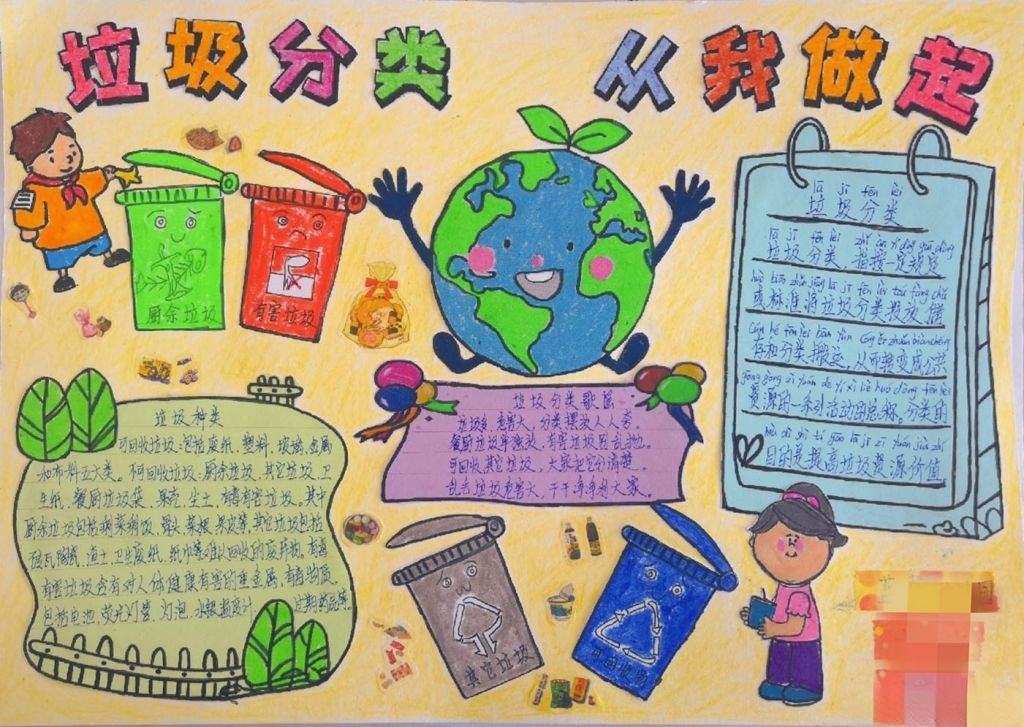 垃圾分类 从我做起
厨余垃圾
有害垃圾
lā jī fēn lèi
垃圾分类
lā jī fēn lèi zhǐ àn yī dìng guī dìng
垃圾分类，指按一定规定
huò biāo zhǔn jiāng lā jī fēn lèi tóu fàng chǔ
或标准将垃圾分类投放储
cún hé fēn lèi bān yùn cóng ér zhuǎn biàn chéng
存和分类搬运，从而转变成公共
gōng gòng zī yuán de yī xì liè huó dòng fēn lèi
资源的一系列活动的总称，分类的
mù dì shì tí gāo lā jī zī yuán jià zhí
目的是提高垃圾资源价值
垃圾分类歌谣
垃圾多危害大，分类摆放人人夸。
餐厨垃圾单独放，有害垃圾
可回收其它垃圾，大家把它分清楚。
乱丢垃圾危害大，干干净净利大家。
垃圾种类
可回收垃圾：包括废纸，塑料，玻璃，金属
和布料五大类。不可回收垃圾：厨余垃圾，其它垃圾，卫
生纸，餐厨垃圾袋，果壳，尘土，有毒有害垃圾。其中
厨余垃圾包括剩菜剩饭，骨头，菜根，果皮等，其它垃圾包括
砖瓦陶瓷，渣土，卫生废纸，纸巾等难以回收的废弃物，有毒
有害垃圾含有对人体健康有害的重金属，有毒物质。
包括电池，荧光灯管，灯泡，水银温度计，过期药品等。
其它垃圾
可回收物